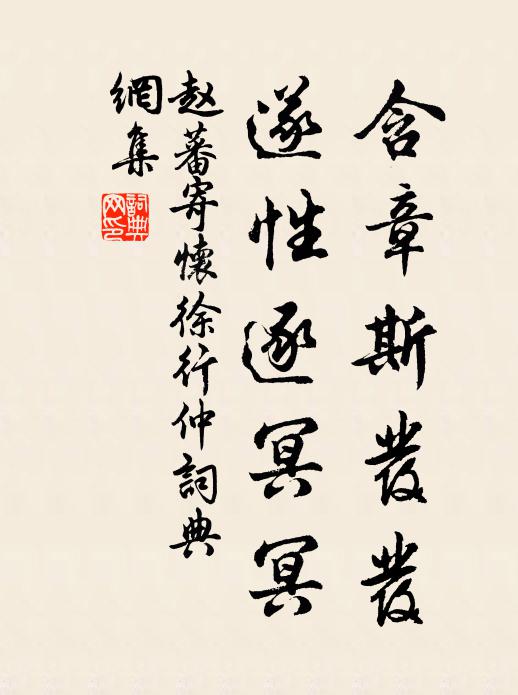 含章斯發發
遂性逐冥冥
赵蕃寄懷徐行仲詞典
網集
詞典网印